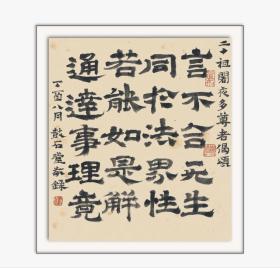 二十祖闍夜多尊者偈頌
言不合无生
同於法界性
若能如是解
通達事理竟
丁酉八月 散石敬錄